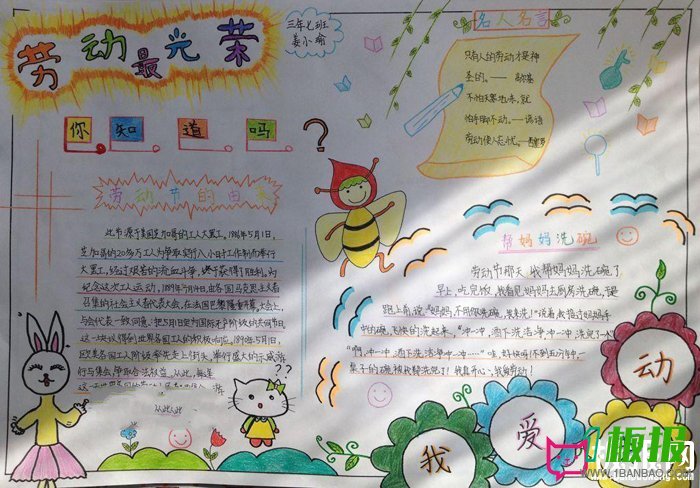 劳动最光荣
三年七班
姜小瑜
你知道吗?
名人名言
只有人的劳动才是神
圣的。——高尔基
不怕天寒地冻,就
怕手脚不动。——谚语
劳动使人忘忧。——西塞罗
劳动节的由来
此节源于美国芝加哥的工人大罢工,1886年5月1日,
芝加哥的20多万工人为争取实行八小时工作制而举行
大罢工,经过艰苦的流血斗争,终于获得了胜利,为
纪念这次工人运动,1889年7月14日,由各国马克思主义者
召集的社会主义者代表大会,在法国巴黎隆重开幕,大会上,
与会代表一致同意,把5月1日定为国际无产阶级的共同节日
这一决议得到世界各国工人的积极响应,1890年5月1日,
欧美各国工人阶级率先走上街头,举行盛大的示威游
行与集会,争取合法权益,从此,每逢
从此,此
帮妈妈洗碗
劳动节那天,我帮妈妈洗碗了
早上,吃完饭,我看见妈妈去厨房洗碗,于是
跑上前说:“妈妈,不用你来洗,我来洗!”说着就抢过妈妈手
中的碗,飞快的洗起来,“冲一冲,洒下洗洁净,冲一冲,洗完了一个
“啊,冲一冲,洒下洗洁净,冲一冲……”哇,真快哟!不到五分钟,一
桌子的碗被我帮洗完了!我真开心,我爱劳动!
??
我爱动
1板报
WWW.1BANBAO.COM